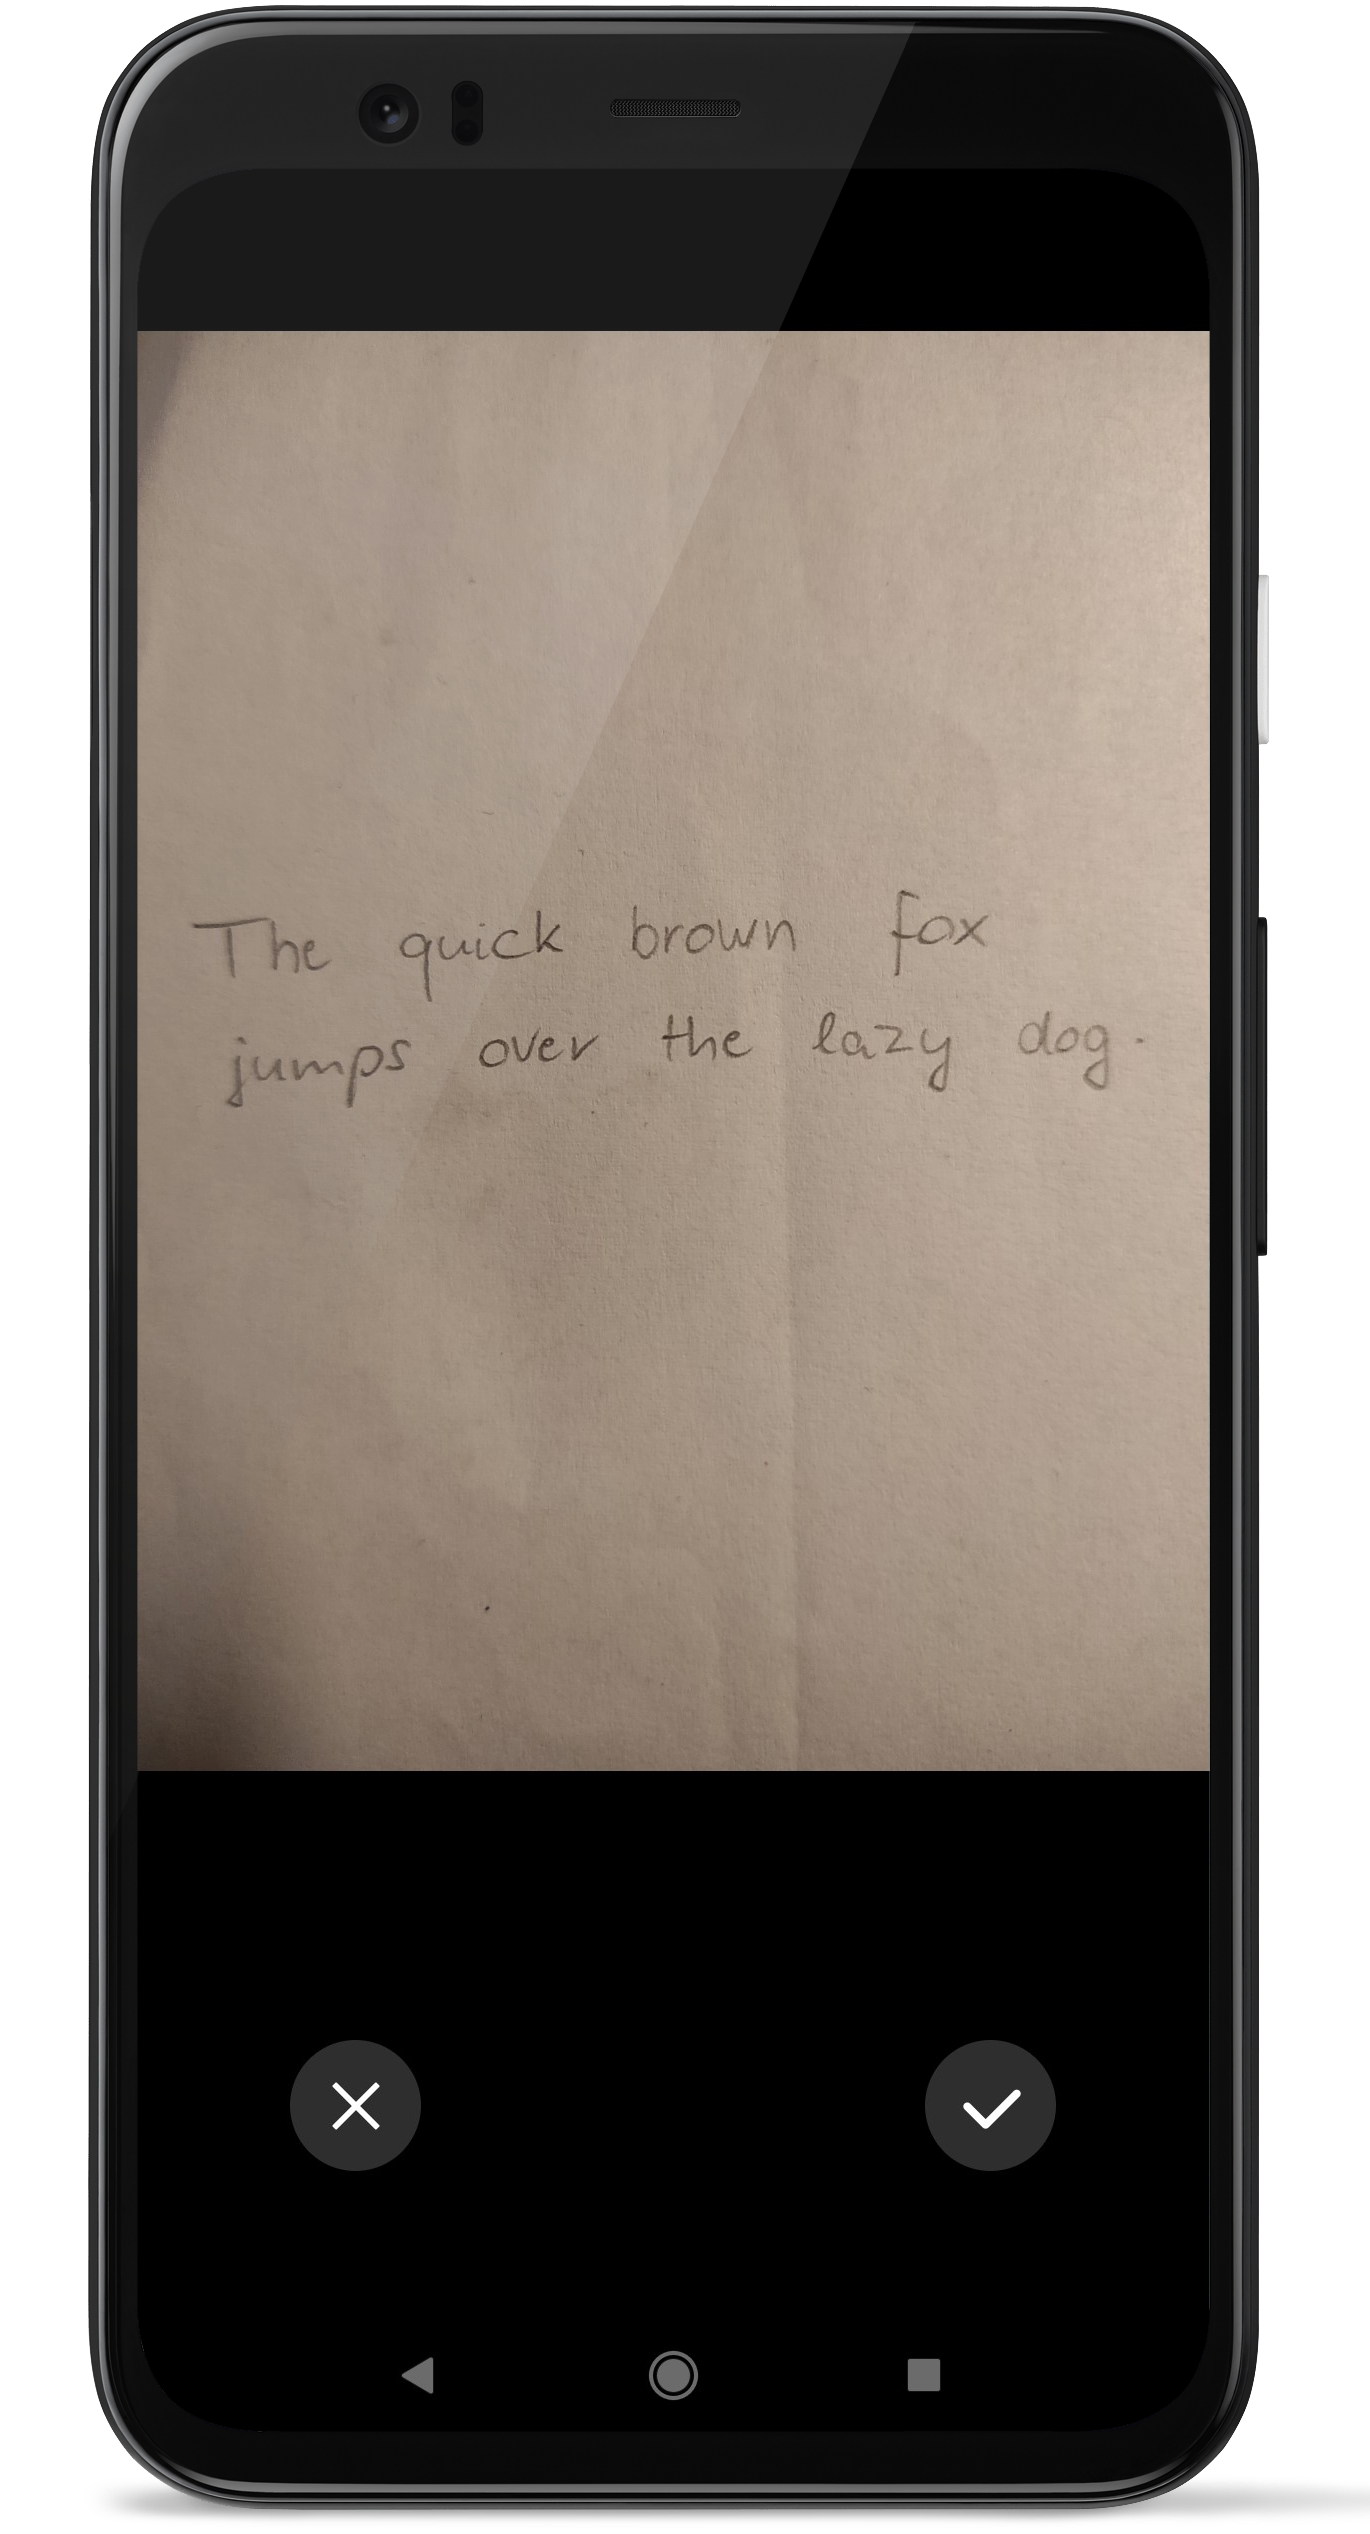 The quick brown fox
jumps over the lazy dog.